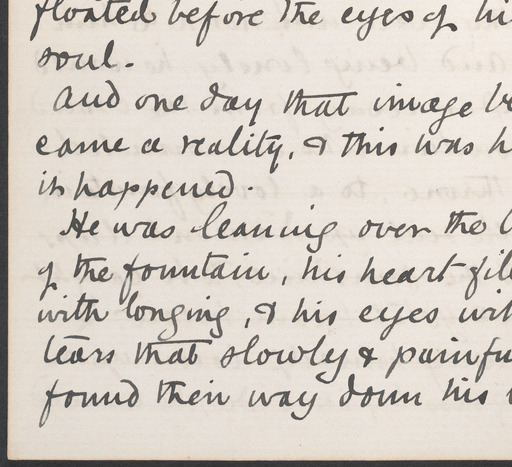 floated before the eyes of hi
soul.
And one day that image be
came a reality, & this was h
it happened.
He was leaning over the b
of the fountain, his heart fil
with longing, & his eyes wit
tears that slowly & painfu
found their way down his